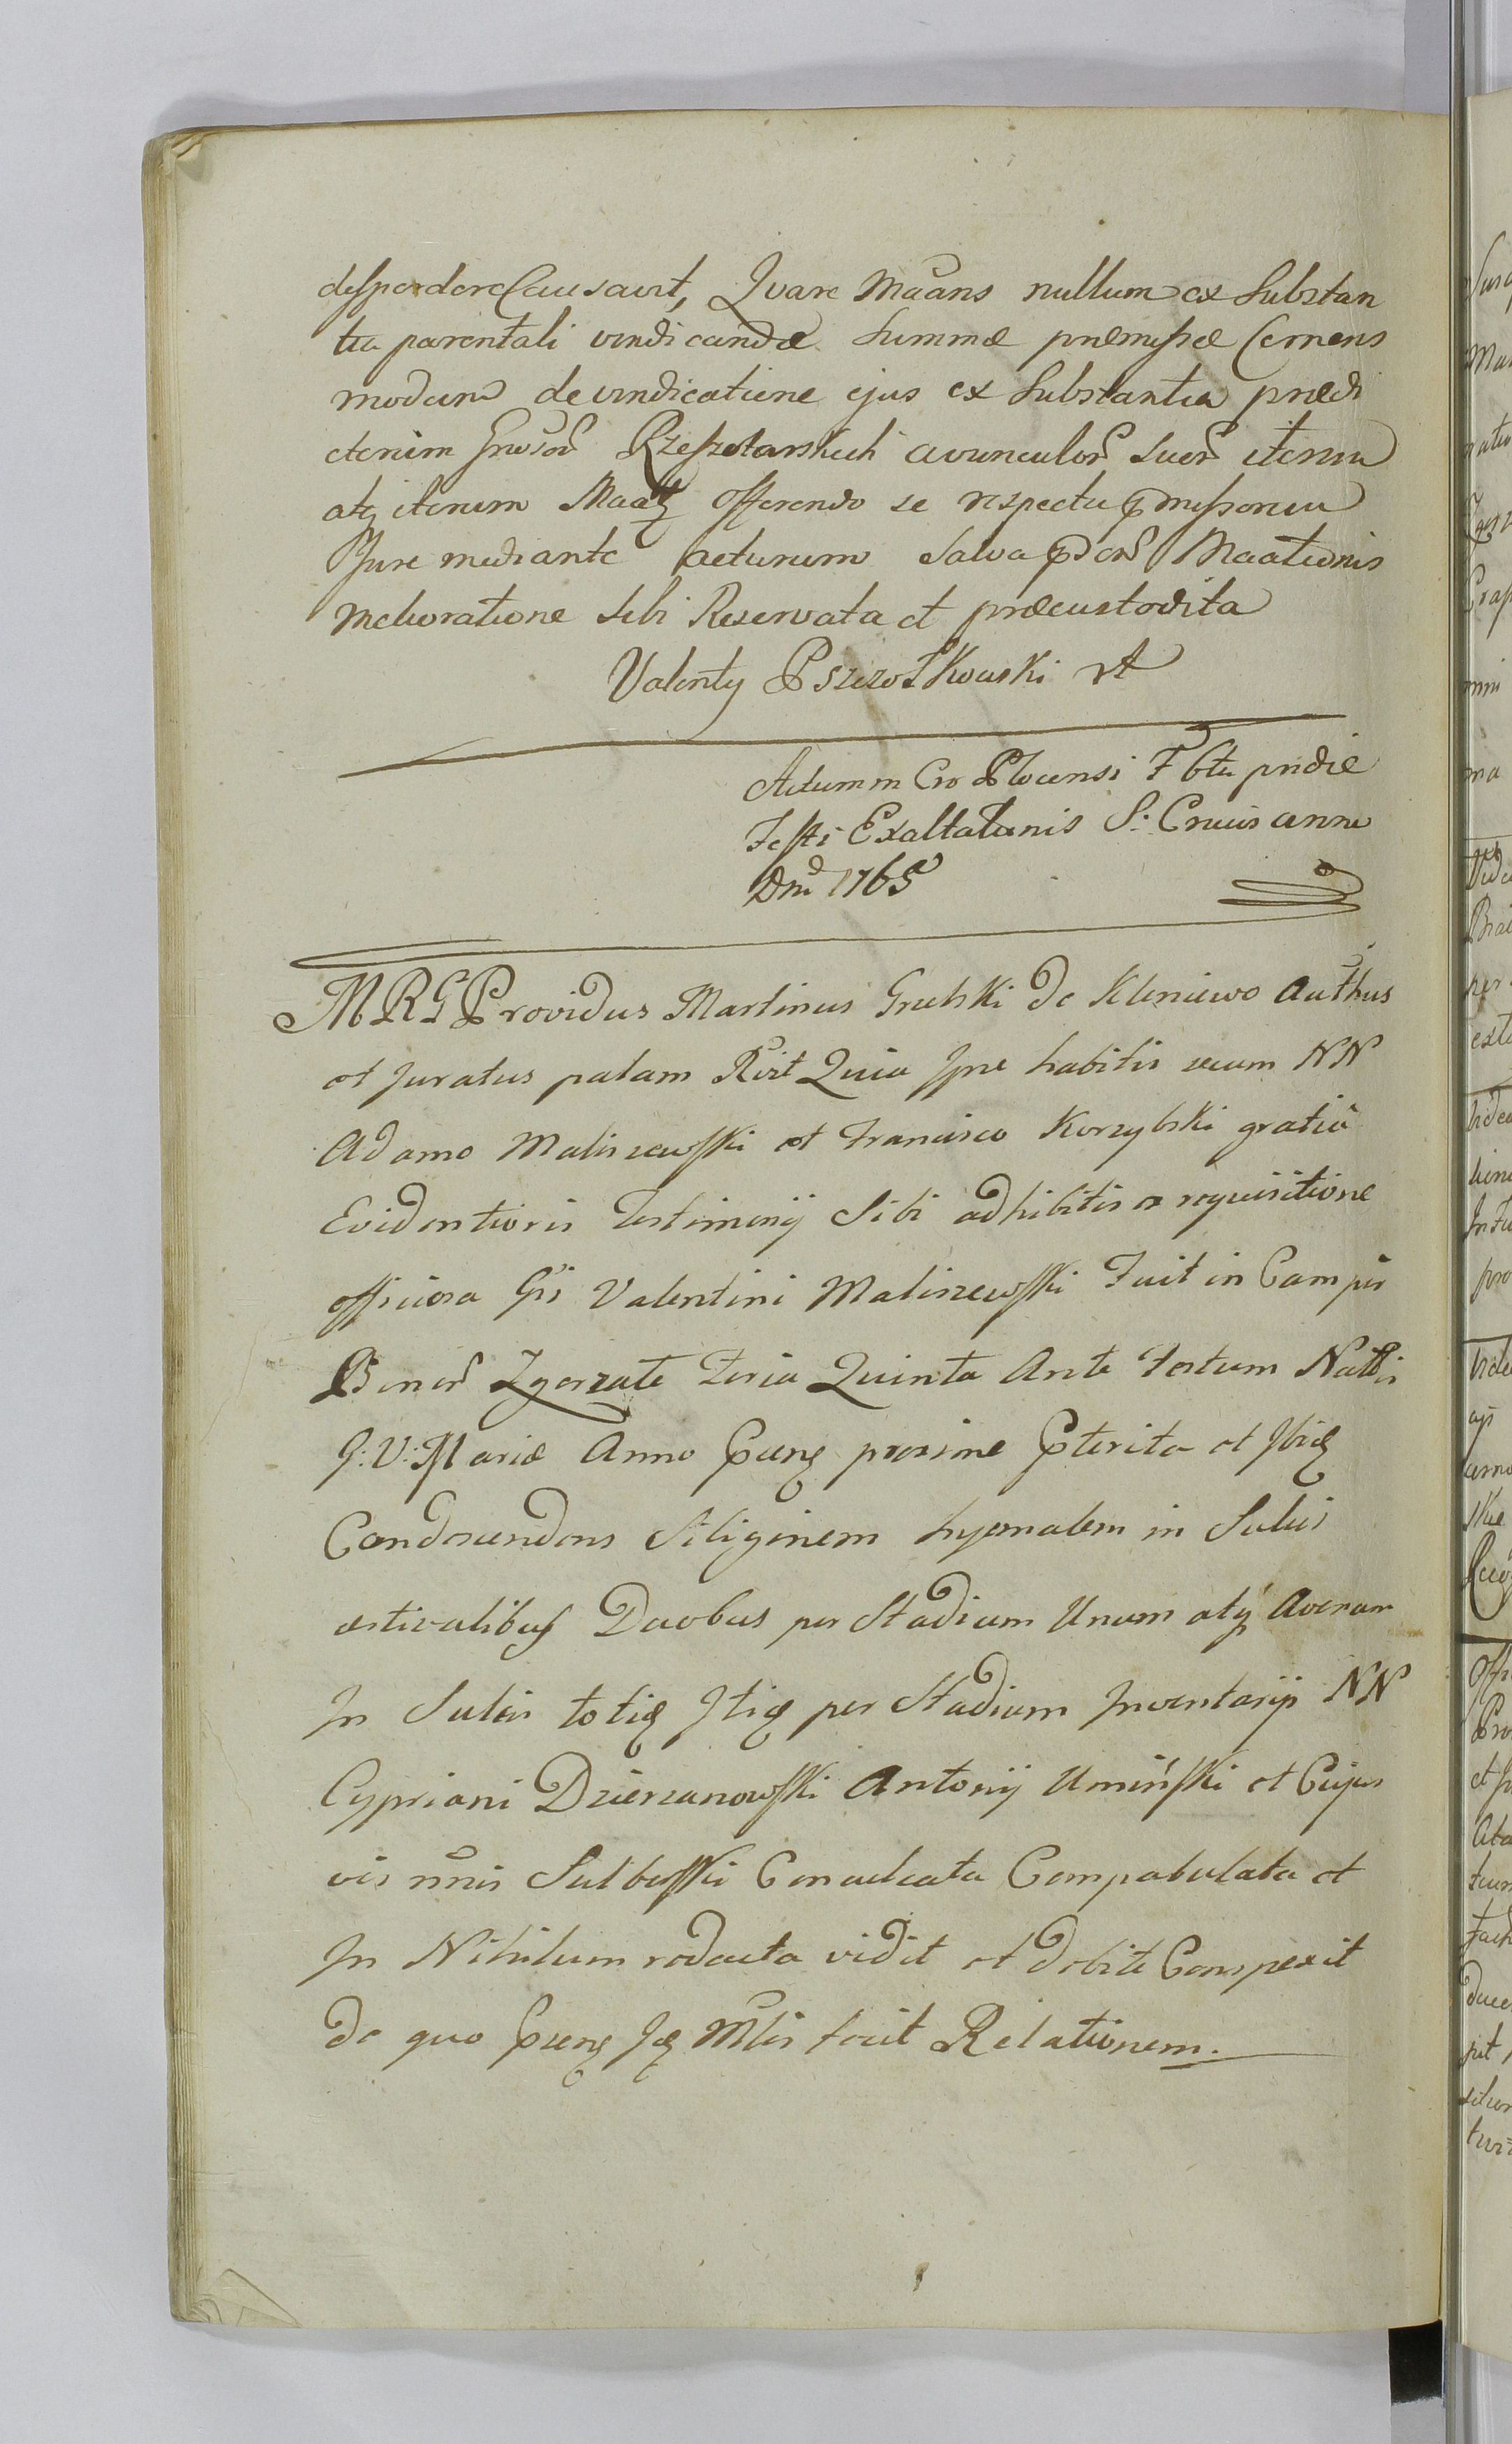 desperdere Causavit, Qvare Maans nullum ex Substan
tia parentali vindicandæ Summæ præmissæ Cernens
modum de vindicatione ejus ex Substantia prædi
ctorum Gnosor Rzeszotarskich avunculor Suor iterum
atq iterum Maatq offerendo se respectu pmissorum
Jure mediante acturum Salva Maationis
melioratione Sibi Reservata et præcustodita
Valenty PszczołKowski
Actum in Cro Plocensi Fbta pridie
Festi Exaltationis S. Crucis anno
Dni 1765
MRG Providus Martinus Grubski de Kleniewo Authus
et Juratus palam Rvit Quia Ipse habitis secum NN
Adamo Maliszewski et Francisco Korzybski gratia
Evidentioris Testimonij Sibi adhibitis ex requisitione
officiosa Gsi Valentini Maliszewski Fuit in Campis
Bonor Zgorzate Feria Quinta Ante Festum Nattis
B: V: Mariæ Anno Pnenq proxime Pterito et Ibiq
Condescendens Siliginem hyemalem in Sulcis
æstivalibus Duobus per Stadium Unum atq Avenam
In Sulcis totiq Itiq per Stadium Inventarijs NN
Cypriani Dzierzanowski Antonij Umiński et Cujus
vis nnis Sulkowski Conculcata Compabulata et
In Nihilum redacta vidit et debite Conspexit
de quo Pnenq Jq Mlis fecit Relationem.